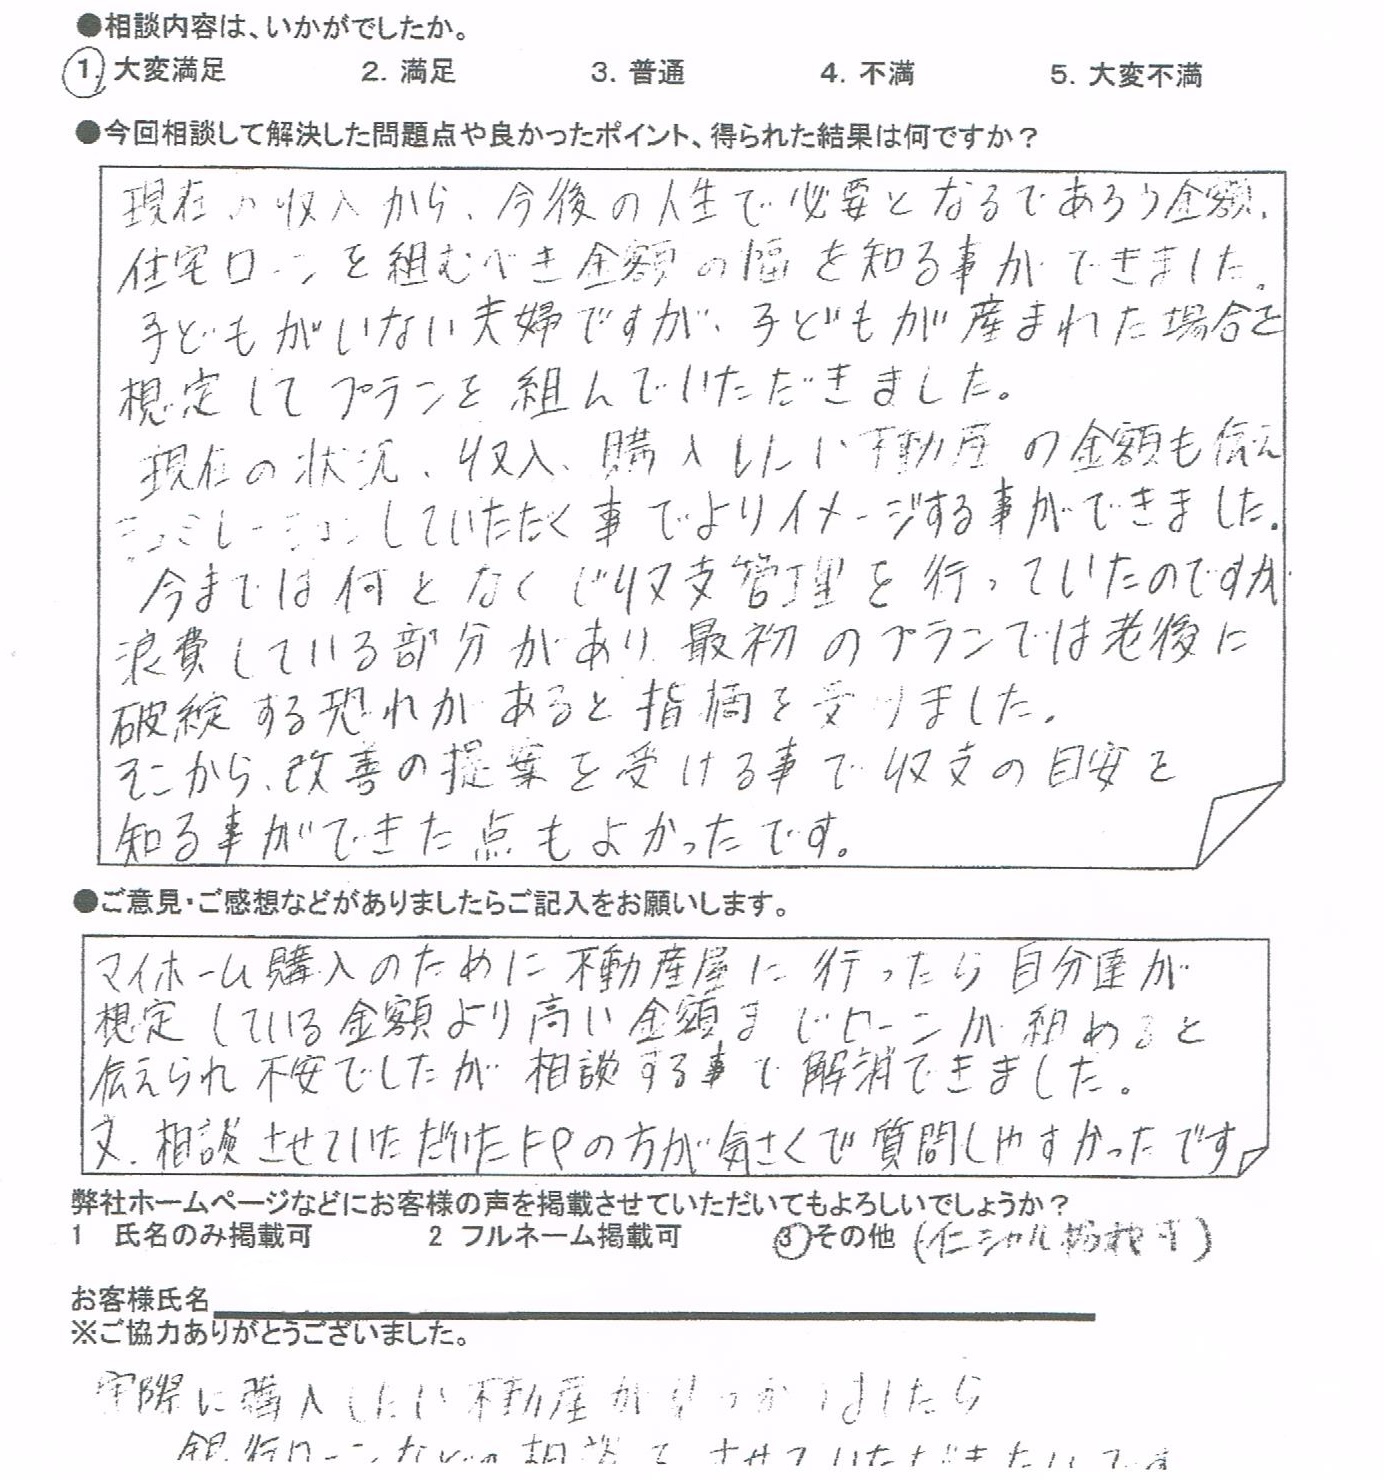 ●相談内容は、いかがでしたか。
1. 大変満足 2. 満足 3. 普通 4. 不満 5. 大変不満
●今回相談して解決した問題点や良かったポイント、得られた結果は何ですか？
現在の収入から、今後の人生で必要となるであろう金額、
住宅ローンを組むべき金額の幅を知る事ができました。
子どもがいない夫婦ですが、子どもが産まれた場合を
想定してプランを組んでいただきました。
現在の状況、収入、購入したい不動産の金額も伝え
シュミレーションしていただく事でよりイメージする事ができました。
今までは何となくで収支管理を行っていたのですが
浪費している部分があり、最初のプランでは老後に
破綻する恐れがあると指摘を受けました。
そこから、改善の提案を受ける事で収支の目安を
知る事ができた点もよかったです。
●ご意見・ご感想などがありましたらご記入をお願いします。
マイホーム購入のために不動産屋に行ったら自分達が
想定している金額より高い金額までローンが組めると
伝えられ不安でしたが相談する事で解消できました。
又、相談させていただいたFPの方が気さくで質問しやすかったです。
弊社ホームページなどにお客様の声を掲載させていただいてもよろしいでしょうか？
1 氏名のみ掲載可 2 フルネーム掲載可 3 その他 (イニシャル掲載可)
お客様氏名
※ご協力ありがとうございました。
実際に購入したい不動産が見つかりましたら
銀行ローンなどの相談もさせていただきたいです